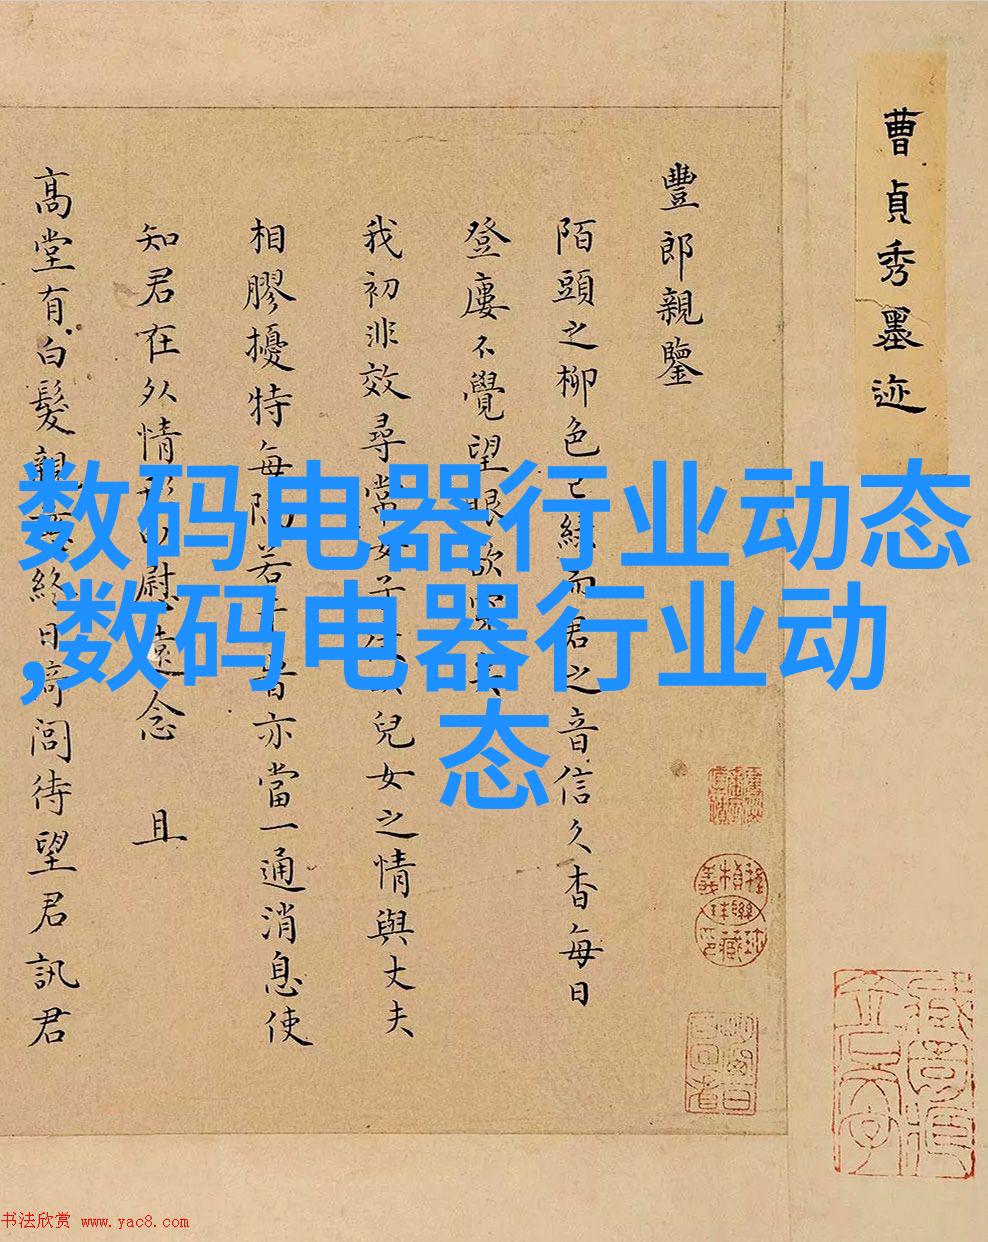 曹貞秀墨迹
豐郎親鑒
陌頭之柳色已綠而君之音信久杳每日
登廔不覺望眼欲穿矣
我初非效尋常女子兒女之情與丈夫
相膠擾特每隔若干音亦當一通消息使
知君在外情形以慰遠念 且
高堂有白髮親每終日倚閭待望君訊君
数码电器行业动态
,数码电器行业动
态
书法欣赏 www.yac8.com